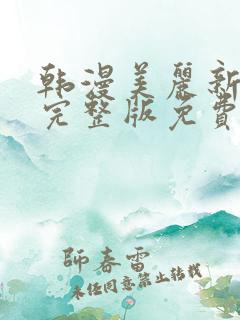 韩漫美麗新
完整版免費
師春雷
未任同意禁止转载